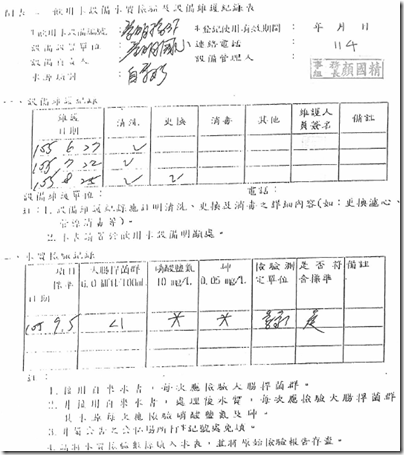 附表二 飲用水設備水質檢驗及設備維護紀錄表
飲用水設備編號：
登記使用有效期間： 年 月 日
設備設置單位：
連絡電話： 114
設備負責人：
設備管理人：
事務組長 顏國精
水源類別： 自來水
一、設備維護紀錄
維護日期 清洗 更換 消毒 其他 維護人員簽名 備註
105 6 27 ✓
105 7 22 ✓
105 8 25 ✓ ✓
設備維護單位： 電話：
註：1.設備維護紀錄應註明清洗、更換及消毒之詳細內容(如：更換濾心、
管線消毒等)。
2.本表請置於飲用水設備明顯處。
二、水質檢驗紀錄
項目 標準 日期 大腸桿菌群 6.0 MFU/100ml 硝酸鹽氮 10 mg/L 砷 0.05 mg/L 檢驗測定單位 是否符合標準 備註
105 9.5 <1 * * 是
註：
1.接用自來水者，每次應檢驗大腸桿菌群。
2.非接用自來水者，處理後水質，每次應檢驗大腸桿菌群
其水源每次應檢驗硝酸鹽氮及砷。